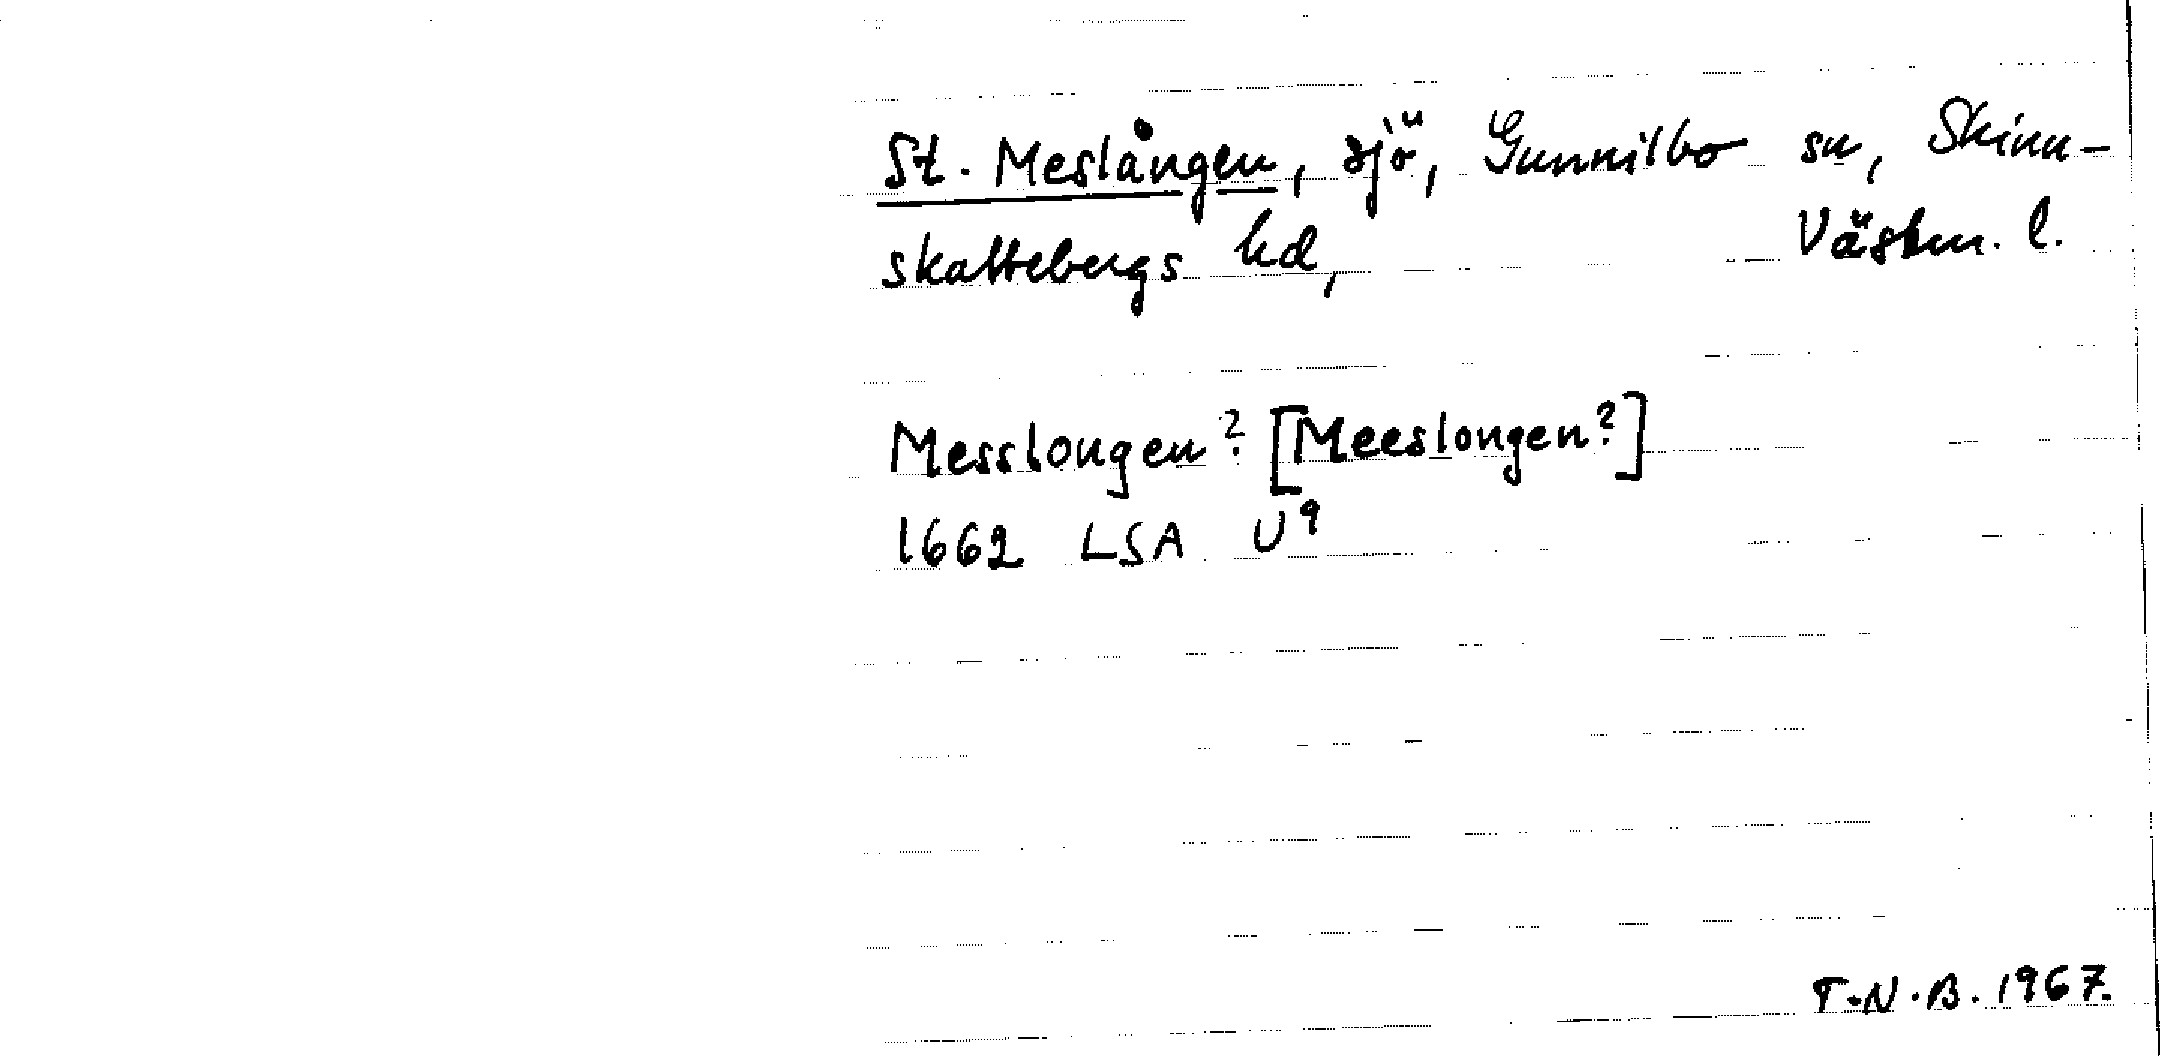 St. Meslången, sjö, Gunnilbo sn, Skinn-
skattebergs hd, Västm. l.
Messlongen? [Meeslongen?]
1662 LSA U9
T.N.B. 1967.